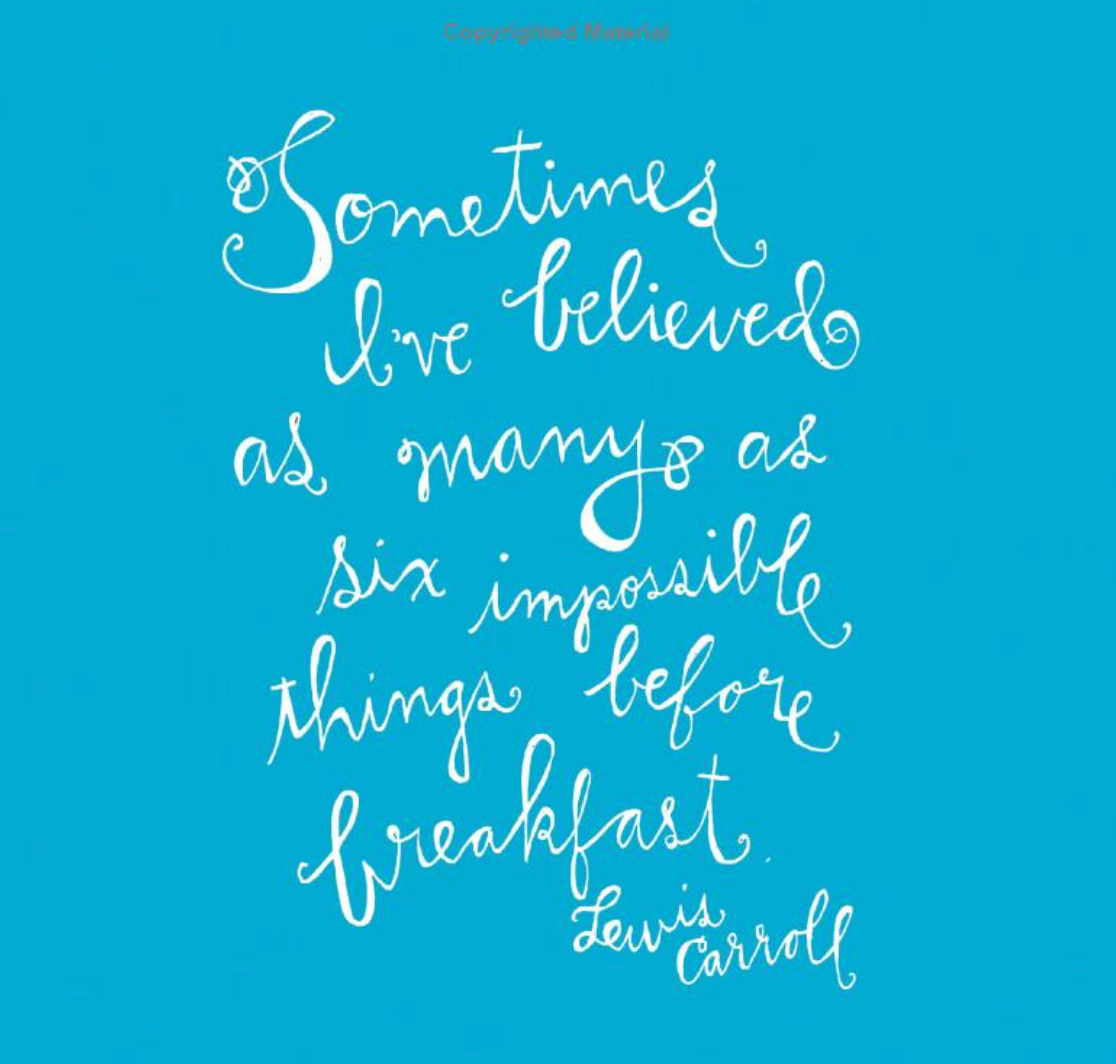 Copyrighted Material
Sometimes
I've believed
as many as
six impossible
things before
breakfast.
Lewis
Carroll